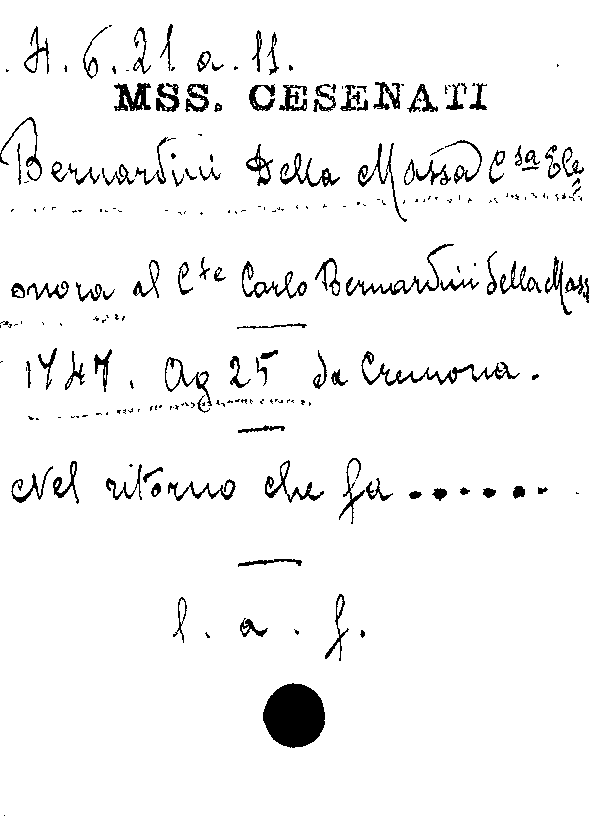 H. 6. 21 a. 11.
MSS. CESENATI
Bernardini Della Massa C.sa Ele
onora al C.te Carlo Bernardini della Mass
1747. Ag 25 da Cremona.
Nel ritorno che fa ......
l. a. f.